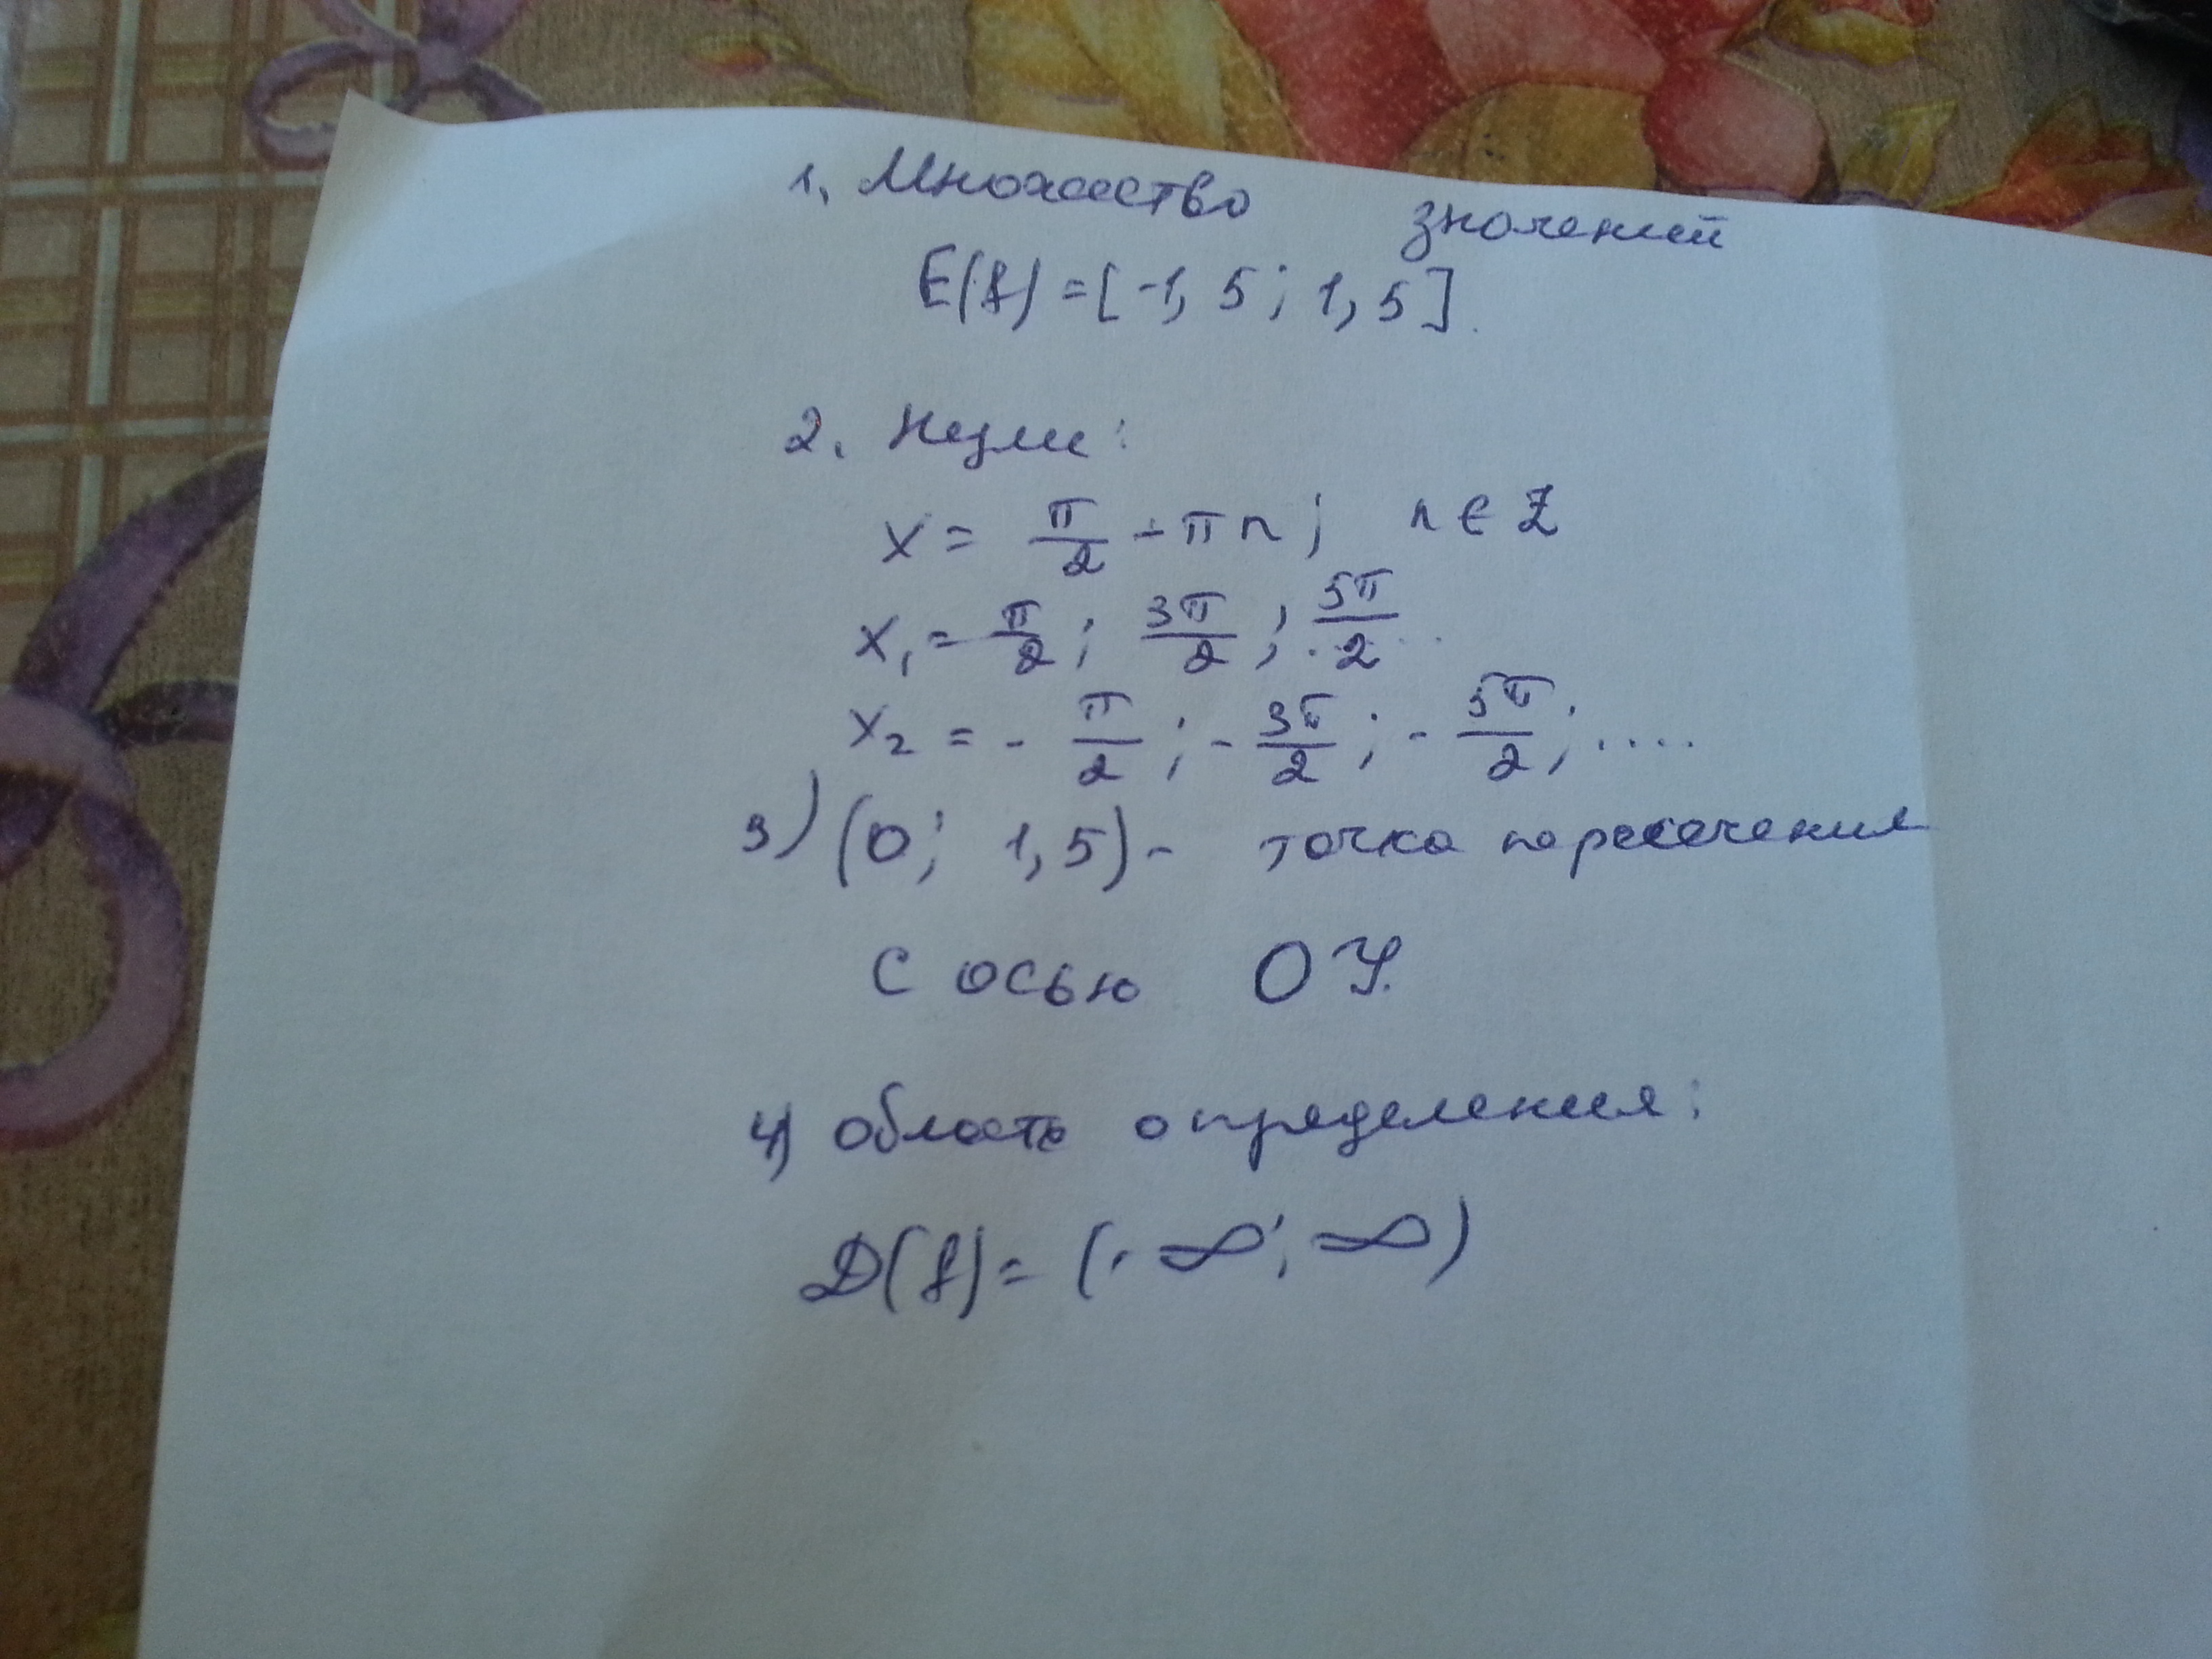 1. Множество значений
E(f) = [-1,5; 1,5].
2. Нули:
x = π/2 + πn; n ∈ Z
x₁ = π/2; 3π/2; 5π/2 ...
x₂ = - π/2; - 3π/2; - 5π/2; ....
3) (0; 1,5) - точка пересечения
с осью ОУ.
4) область определения:
D(f) = (-∞; ∞)